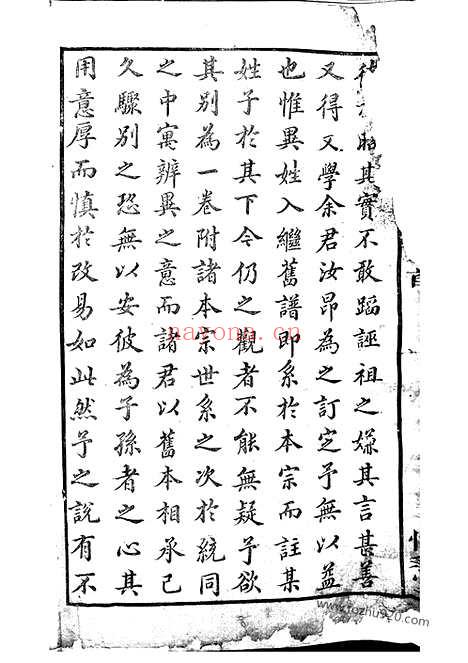 其實不敢蹈誣祖之嫌其言甚善
又得又學余君汝昂為之訂定予無以益
也惟異姓入繼舊譜即系於本宗而註某
姓子於其下今仍之觀者不能無疑予欲
其別為一卷附諸本宗世系之次於統同
之中寓辨異之意而諸君以舊本相承已
久驟別之恐無以安彼為子孫者之心其
用意厚而慎於改易如此然予之說有不
nayona.cn
www.fozhu920.com